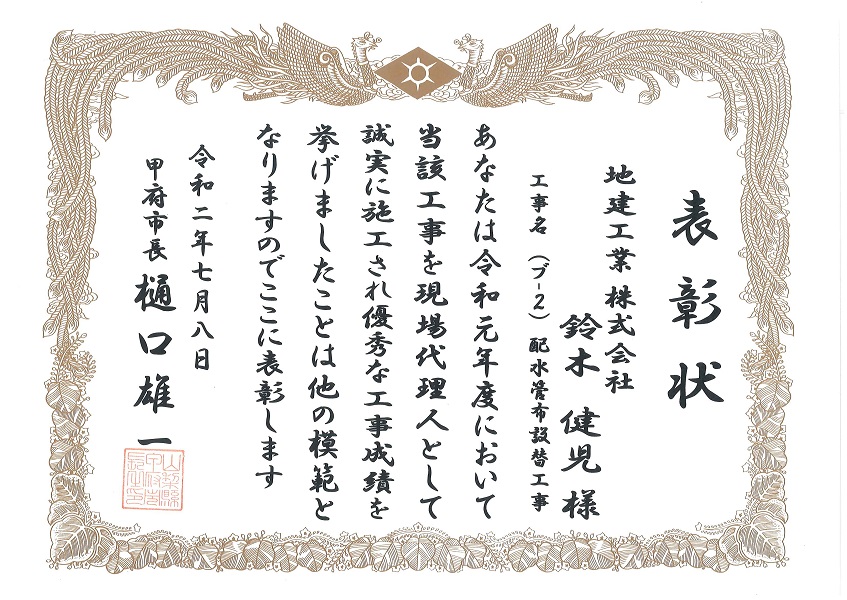 表彰状
地建工業株式会社
鈴木健児様
工事名（ブ-2）配水管布設替工事
あなたは令和元年度において
当該工事を現場代理人として
誠実に施工され優秀な工事成績を
挙げましたことは他の模範と
なりますのでここに表彰します
令和二年七月八日
甲府市長 樋口雄一